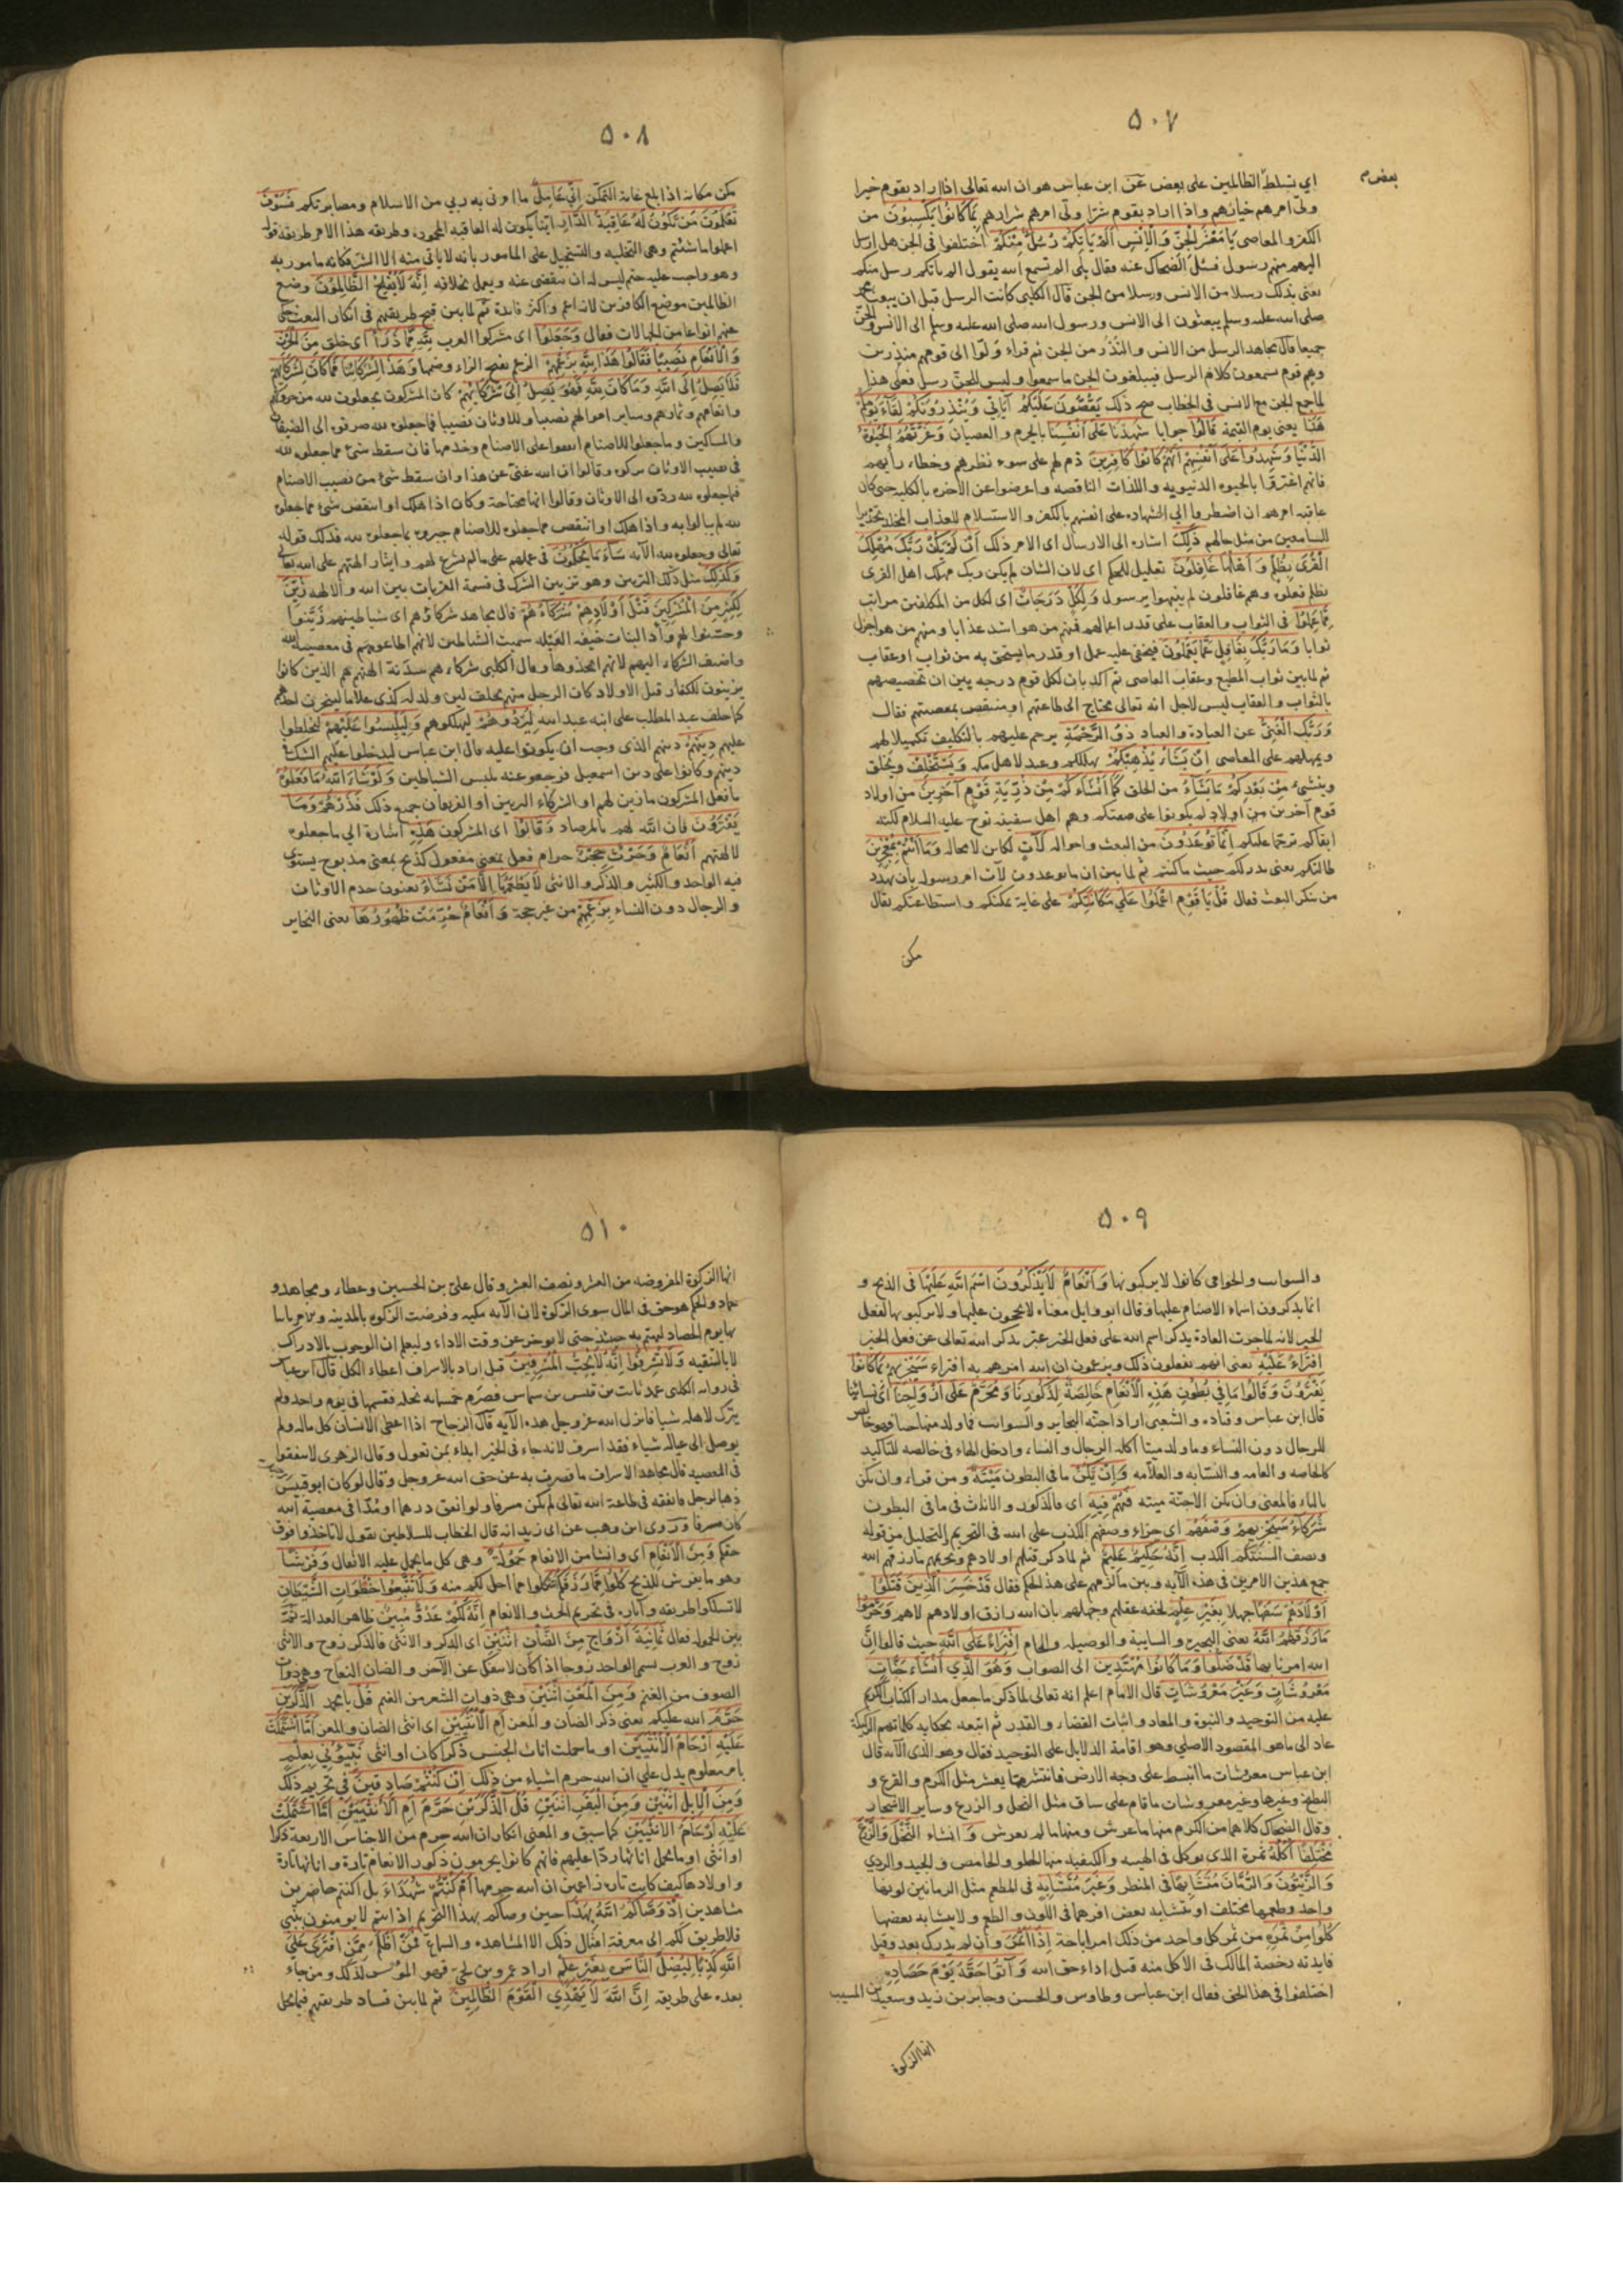 ٥٠٧
اي نسلط الظالمين على بعض عن ابن عباس هو ان الله تعالى اذا اراد بقوم خيرا
ولى امرهم خيارهم واذا اراد بقوم شرا ولى امرهم شرارهم بما كانوا يكسبون من
الكفر والمعاصى يا معشر الجن والانس الم ياتكم رسل منكم اختلفوا في الجن هل ارسل
اليهم منهم رسول فسئل الضحاك عنه فقال بلى الم تسمع الله يقول الم ياتكم رسل منكم
يعنى بذلك رسلا من الانس ورسلا من الجن قال الكلبى كانت الرسل قبل ان يبعث محمد
صلى الله عليه وسلم يبعثون الى الانس ورسول الله صلى الله عليه وسلم الى الانس والجن
جميعا قال مجاهد الرسل من الانس والنذر من الجن ثم قراء ولوا الى قومهم منذرين
وهم قوم يسمعون كلام الرسل فيبلغون الجن ما سمعوا وليس للجن رسل فعلى هذا
لما جمع الجن مع الانس في الخطاب صح ذلك يقصون عليكم آياتي وينذرونكم لقاء يومكم
هذا يعنى يوم القيمة قالوا جوابا شهدنا على انفسنا بالجرم والعصيان وغرتهم الحيوة
الدنيا وشهدوا على انفسهم انهم كانوا كافرين ذم لهم على سوء نظرهم وخطاء رأيهم
فانهم اغتروا بالحيوه الدنيويه واللذات الناقصه واعرضوا عن الآخره بالكليه حتى كان
عاقبه امرهم ان اضطروا الى الشهاده على انفسهم بالكفر والاستسلام للعذاب المخلد تحذيرا
للسامعين من مثل حالهم ذلك اشاره الى الارسال اى الامر ذلك ان لم يكن ربك مهلك
القرى بظلم واهلها غافلون تعليل للحكم اى لان الشان لم يكن ربك مهلك اهل القرى
بظلم فعلوه وهم غافلون لم ينبهوا برسول ولكل درجات اى لكل من المكلفين مراتب
مما عملوا فى الثواب والعقاب على قدر اعمالهم فمنهم من هو اشد عذابا ومنهم من هو اجزل
ثوابا وما ربك بغافل عما يعملون فيخفى عليه عمل او قدر ما يستحق به من ثواب او عقاب
ثم لما بين ثواب المطيع وعقاب العاصى ثم اكد بان لكل قوم درجه بين ان تخصيصهم
بالثواب والعقاب ليس لاجل انه تعالى محتاج الى طاعتهم او منتقص بمعصيتهم فقال
وربك الغنى عن العبادة والعباد ذو الرحمة يرحم عليهم بالتكليف تكميلا لهم
ويمهلهم على المعاصى ان يشاء يذهبكم يهلككم وعيد لاهل مكه ويستخلف ويخلق
وينشئ من بعدكم ما يشاء من الخلق كما انشاكم من ذرية قوم آخرين من اولاد
قوم آخرين من اولاد لم يكونوا على صفتكم وهم اهل سفينه نوح عليه السلام لكنه
ابقاكم ترحما عليكم انما توعدون من البعث واحواله لآت لكاين لا محاله وما انتم بمعجزين
طالبكم يعنى يدرككم حيث ما كنتم ثم لما بين ان ما يوعدون لآت امر رسوله بان يهدد
من ينكر البعث فقال قل يا قوم اعملوا على مكانتكم على غاية تمكنكم واستطاعتكم يقال
مكن
٥٠٨
مكن مكانه اذا بلغ غايه التمكن انى عامل ما اوتى به ربي من الاسلام ومصابرتكم فسوف
تعلمون من تكون له عاقبة الدار اينا يكون له العاقبه المحموده وطريقه هذا الامر طريقه قوله
اعملوا ما شئتم وهى التخليه والتسجيل على المامور بانه لا ياتى منه الا الشر فكانه مامور به
وهو واجب عليه حتم ليس له ان يتقضى عنه ويعمل بخلافه انه لا يفلح الظالمون وضع
الظالمين موضع الكافرين لانه اعم واكثر فايدة ثم لما بين قبح طريقهم فى انكار البعث حكى
عنهم انواعا من الجهالات فقال وجعلوا اى مشركوا العرب لله مما ذرأ اى خلق من الحرث
والانعام نصيبا فقالوا هذا لله بزعمهم الزعم بفتح الزاء وضمها وهذا لشركائنا فما كان لشركائهم
فلا يصل الى الله وما كان لله فهو يصل الى شركائهم كان المشركون يجعلون لله من حروثهم
وانعامهم وثمارهم وساير اموالهم نصيبا وللاوثان نصيبا فما جعلوه لله صرفوه الى الضيفان
والمساكين وما جعلوا للاصنام انفقوا على الاصنام وخدمها فان سقط شئ مما جعلوه لله
فى نصيب الاوثان تركوه وقالوا ان الله غنى عن هذا وان سقط شئ من نصيب الاصنام
فيما جعلوه لله ردوه الى الاوثان وقالوا انها محتاجة وكان اذا هلك او انتقص شئ مما جعلوه
لله لم يبالوا به واذا هلك او انتقص مما جعلوه للاصنام جبروه بما جعلوه لله فذلك قوله
تعالى وجعلوا لله الآيه ساء ما يحكمون فى عملهم على ما لم يشرع لهم وايثار الهتهم على الله تعالى
وكذلك مثل ذلك التزيين وهو تزيين الشرك فى قسمة القربات بين الله والالهه زين
لكثير من المشركين قتل اولادهم شركاءهم قال مجاهد شركاؤهم اى شياطينهم زينوا
وحسنوا لهم وأد البنات خيفه العيله سميت الشياطين لانهم اطاعوهم فى معصيه الله
واضيف الشركاء اليهم لانهم اتخذوها وقال الكلبى شركاءهم سدنة الهتهم هم الذين كانوا
يزينون للكفار قتل الاولاد كان الرجل منهم يحلف لين ولد له كذى غلاما لينحرن احدهم
كما حلف عبد المطلب على ابنه عبد الله ليردوهم ليهلكوهم وليلبسوا عليهم ليخلطوا
عليهم دينهم دينهم الذى وجب ان يكونوا عليه قال ابن عباس ليدخلوا عليهم الشك فى
دينهم وكانوا على دين اسمعيل فرجعوا عنه بلبس الشياطين ولو شاء الله ما فعلوه
ما فعل المشركون ما زين لهم او الشركاء التزيين او الفريقان جميع ذلك فذرهم وما
يفترون فان الله لهم بالمرصاد وقالوا اى المشركون هذه اشارة الى ما جعلوه
لالهتهم انعام وحرث حجر حرام فعل بمعنى مفعول كذبح بمعنى مذبوح يستوى
فيه الواحد والكثير والذكر والانثى لا يطعمها الا من نشاء يعنون خدم الاوثان
والرجال دون النساء بزعمهم من غير حجة وانعام حرمت ظهورها يعنى البحاير
٥٠٩
والسوايب والحوامى كانوا لا يركبونها وانعام لا يذكرون اسم الله عليها فى الذبح و
انما يذكرون اسماء الاصنام عليها وقال ابو وايل معناه لا يحجون عليها ولا يركبونها لفعل
الخير لانه لما جرت العادة بذكر اسم الله على فعل الخير عبر بذكر الله تعالى عن فعل الخير
افتراء عليه يعنى انهم يفعلون ذلك ويزعمون ان الله امرهم به افتراء سيجزيهم بما كانوا
يفترون وقالوا ما في بطون هذه الانعام خالصة لذكورنا ومحرم على ازواجنا اى نسائنا
قال ابن عباس وقتاده والشعبى اراد اجنه البحاير والسوايب فما ولد منها حيا فهو خالص
للرجال دون النساء وما ولد ميتا اكله الرجال والنساء وادخل الهاء فى خالصه للتأكيد
كالخاصه والعامه والنسابه والعلامه وان يكن ما فى البطون ميتة ومن قراء وان تكن
بالتاء فالمعنى وان تكن الاجنة ميته فهم فيه اى فالذكور والاناث فى ما فى البطون
شركاء سيجزيهم وصفهم اى جزاء وصفهم الكذب على الله فى التحريم والتحليل من قوله
وتصف السنتكم الكذب انه حكيم عليم ثم لما ذكر قتلهم اولادهم وتحريمهم ما رزقهم الله
جمع هذين الامرين فى هذه الآيه وبين ما لزمهم على هذا الحكم فقال قد خسر الذين قتلوا
اولادهم سفها جهلا بغير علم لخفه عقلهم وجهلهم بان الله رازق اولادهم لا هم وحرموا
ما رزقهم الله يعنى البحيره والسايبة والوصيله والحام افتراء على الله حيث قالوا ان
الله امرنا بها قد ضلوا وما كانوا مهتدين الى الصواب وهو الذى انشاء جنات
معروشات وغير معروشات قال الامام اعلم انه تعالى لما ذكر ما جعل مدار الكتاب الكريم
عليه من التوحيد والنبوة والمعاد واثبات القضاء والقدر ثم اتبعه بحكايه كلماتهم الركيكة
عاد الى ما هو المقصود الاصلي وهو اقامة الدلايل على التوحيد فقال وهو الذى الآيه قال
ابن عباس معروشات ما انبسط على وجه الارض فانتشر مما يعرش مثل الكرم والقرع و
البطيخ وغيرها وغير معروشات ما قام على ساق مثل النخل والزرع وساير الاشجار
وقال الضحاك كلاهما من الكرم منها ما عرش ومنها ما لم يعرش و انشاء النخل والزرع
مختلفا اكله ثمرة الذى يوكل فى الهيه والكيفيه منها الحلو والحامض والجيد والردي
والزيتون والرمان متشابها فى المنظر وغير متشابه فى المطعم مثل الرمانين لونهما
واحد وطعمها مختلف او يتشابه بعض افرهما فى اللون والطعم ولا يتشابه بعضها
كلوا من ثمره من ثمر كل واحد من ذلك امر اباحة اذا اثمر وان لم يدرك بعد وقيل
فايدته رخصة المالك فى الاكل منه قبل اداء حق الله وآتوا حقه يوم حصاده
اختلفوا فى هذا الحق فقال ابن عباس وطاوس والحسن وجابر بن زيد وسعيد بن المسيب
انها الزكوة
٥١٠
انها الزكوة المفروضه من العشر ونصف العشر وقال على بن الحسين وعطاء ومجاهد و
حماد والحكم هو حق فى المال سوى الزكوة لان الآيه مكيه وفرضت الزكوه بالمدينه
بها يوم الحصاد ليهتم به حينئذ حتى لا يوخر عن وقت الاداء وليعلم ان الوجوب بالادراك
لا بالتنقيه ولا تسرفوا انه لا يحب المسرفين قيل اراد بالاسراف اعطاء الكل قال ابن عباس
فى روايه الكلبى عمد ثابت بن قيس بن شماس فصرم خمسمايه نخله فقسمها فى يوم واحد ولم
يترك لاهله شيا فانزل الله عز وجل هذه الآيه قال الزجاج اذا اعطى الانسان كل ماله ولم
يوصل الى عياله شياء فقد اسرف لانه جاء فى الخبر ابداء بمن تعول وقال الزهرى لا تنفقوا
فى المعصيه قال مجاهد الاسراف ما قصرت به عن حق الله عز وجل وقال لو كان ابو قبيس
ذهبا لرجل فانفقه فى طاعة الله تعالى لم يكن مسرفا ولو انفق درهما او مدا فى معصية الله
كان مسرفا وروى ابن وهب عن ابى زيد انه قال الخطاب للسلاطين يقول لا تاخذوا فوق
حقكم ومن الانعام اى وانشا من الانعام حمولة وهى كل ما يحمل عليه الاثقال وفرشا
وهو ما يفرش للذبح كلوا مما رزقكم الله كلوا مما احل لكم منه ولا تتبعوا خطوات الشيطان
لا تسلكوا طريقه وآثاره فى تحريم الحرث والانعام انه لكم عدو مبين ظاهر العداله ثمة
بين الحموله فقال ثمانية ازواج من الضأن اثنين اى الذكر والانثى فالذكر زوج والانثى
زوج والعرب تسمى الواحد زوجا اذا كان لا ينفك عن الآخر والضان النعاج وهى ذوات
الصوف من الغنم ومن المعز اثنين وهى ذوات الشعر من الغنم قل يا محمد آلذكرين
حرم الله عليكم يعنى ذكر الضان والمعز ام الانثيين اى انثى الضان والمعز اما اشتملت
عليه ارحام الانثيين او ما حملت اناث الجنس ذكرا كان او انثى نبئونى بعلم
بامر معلوم يدل على ان الله حرم اشياء من ذلك ان كنتم صادقين فى تحريم ذلك
ومن الابل اثنين ومن البقر اثنين قل آلذكرين حرم ام الانثيين اما اشتملت
عليه ارحام الانثيين كما سبق والمعنى انكار ان الله حرم من الاجناس الاربعة ذكرا
او انثى او ما يحمل اناثها ردا عليهم فانهم كانوا يحرمون ذكور الانعام تارة واناثها تارة
واولادها كيف كانت تاره زاعمين ان الله حرمها ام كنتم شهداء بل اكنتم حاضرين
مشاهدين اذ وصاكم الله بهذا حين وصاكم بهذا التحريم اذ انتم لا يومنون بنبى
فلا طريق لكم الى معرفة امثال ذلك الا المشاهده والسماع فمن اظلم ممن افترى على
الله كذبا ليضل الناس بغير علم اراد عمرو بن لحى فهو الموسس لذلك ومن جاء
بعده على طريقه ان الله لا يهدى القوم الظالمين ثم لما بين فساد طريقتهم فيما يحل